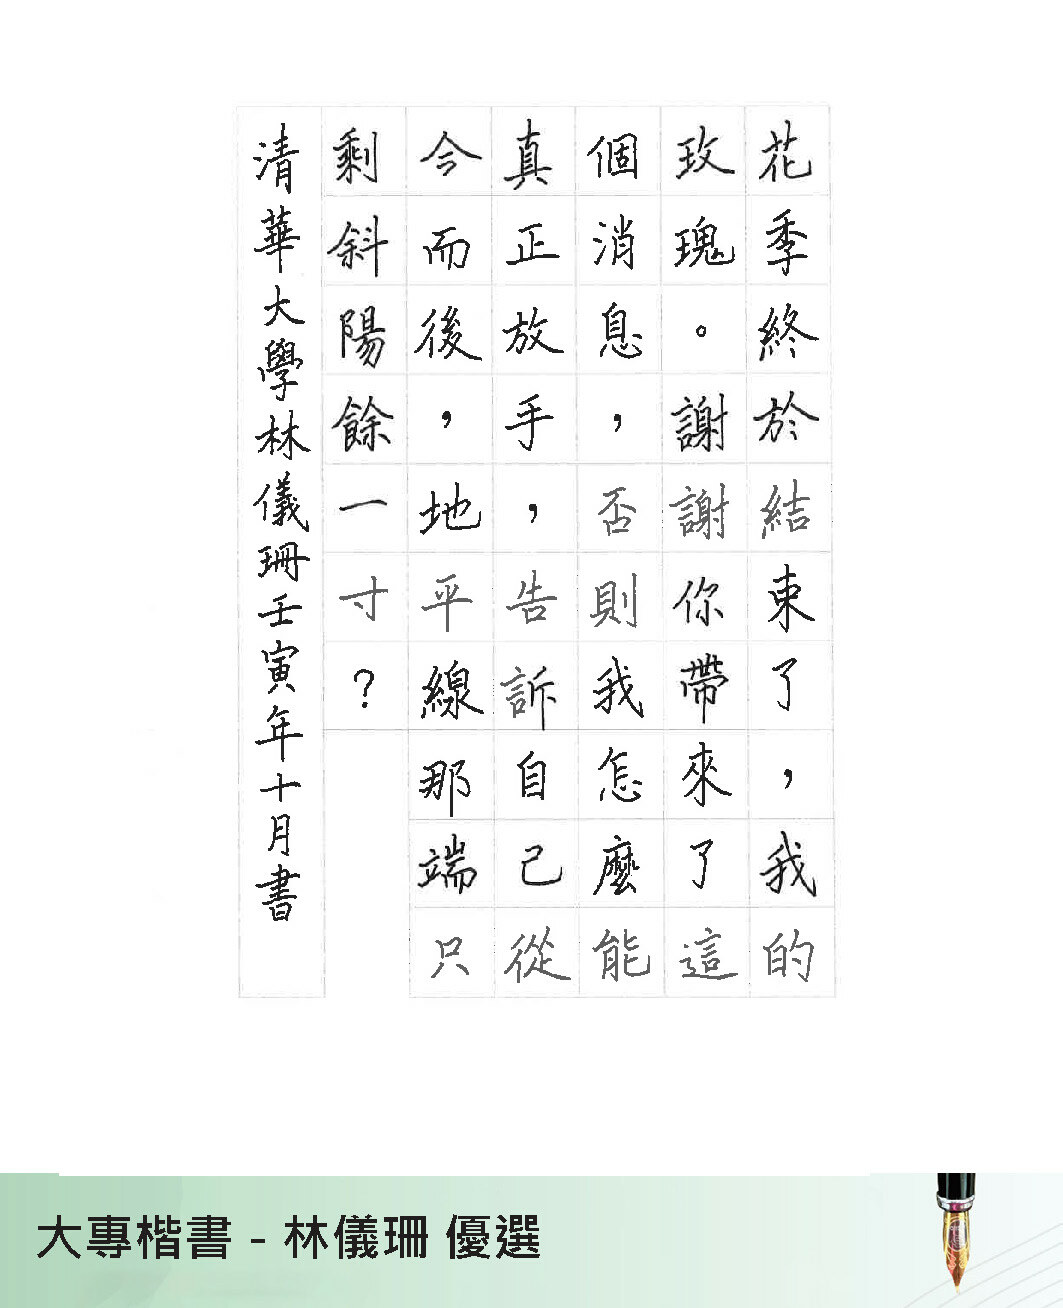 花季終於結束了，我的
玫瑰。謝謝你帶來了這
個消息，否則我怎麼能
真正放手，告訴自己從
今而後，地平線那端只
剩斜陽餘一寸？
清華大學林儀珊壬寅年十月書
大專楷書 - 林儀珊 優選